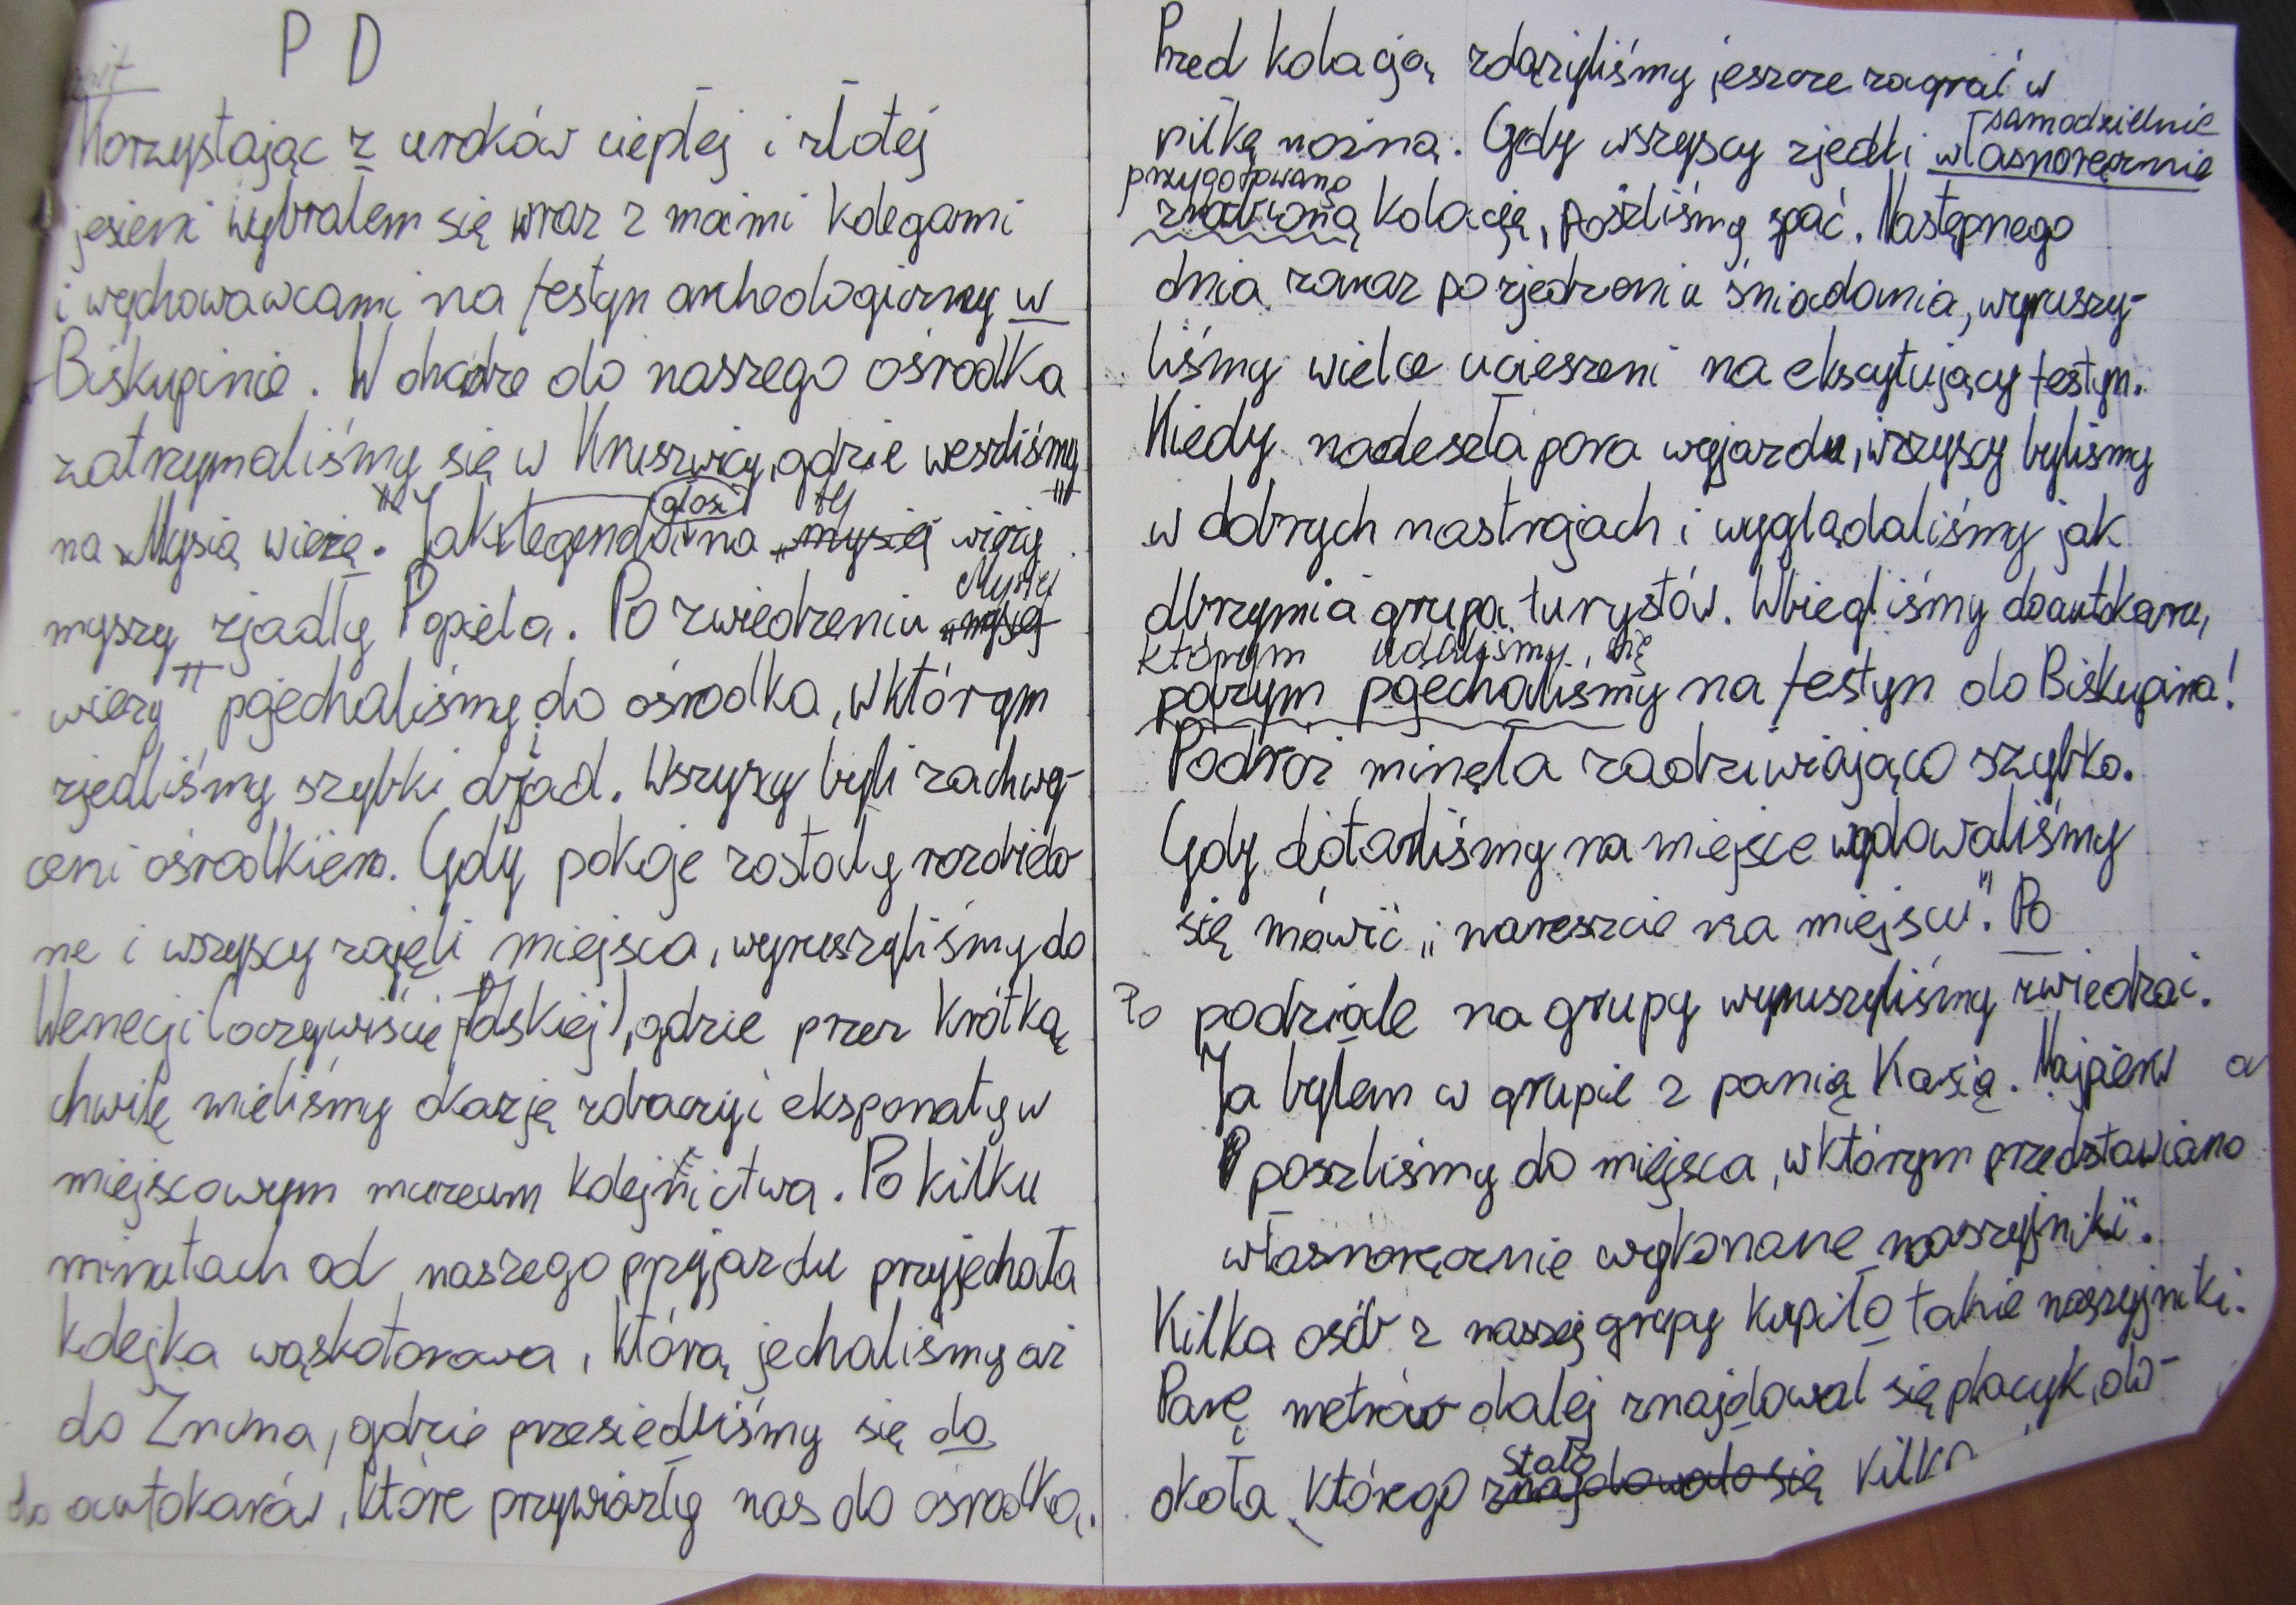 P D
Korzystając z uroków ciepłej i złotej
jesieni wybrałem się wraz z moimi kolegami
i wychowawcami na festyn archeologiczny w
Biskupinie. W drodze do naszego ośrodka
zatrzymaliśmy się w Kruszwicy, gdzie weszliśmy
na „Mysią wieżę". Jak legenda głosi na tej „mysiej wieży"
myszy zjadły Popiela. Po zwiedzeniu „mysej Mysiej
wieży" pojechaliśmy do ośrodka, w którym
zjedliśmy szybki objad. Wszyscy byli zachwy-
ceni ośrodkiem. Gdy pokoje zostały rozdielo
ne i wszyscy zajęli miejsca, wyruszyliśmy do
Wenecji (oczywiście Polskiej), gdzie przez krótką
chwilę mieliśmy okazję zobaczyć eksponaty w
miejscowym muzeum kolejnictwa. Po kilku
minutach od naszego przyjazdu przyjechała
kolejka wąskotorowa, którą jechaliśmy aż
do Żnina, gdzie przesiedliśmy się do
do autokarów, które przywiozły nas do ośrodka.
Przed kolacją zdążyliśmy jeszcze zagrać w
piłkę nożną. Gdy wszyscy zjedli własnoręcznie samodzielnie
zrobioną przygotowaną kolację, poszliśmy spać. Następnego
dnia zaraz po zjedzeniu śniadania, wyruszy-
liśmy wielce ucieszeni na ekscytujący festyn.
Kiedy nadeszła pora wyjazdu, wszyscy byliśmy
w dobrych nastrojach i wyglądaliśmy jak
olbrzymia grupa turystów. Wbiegliśmy do autokaru,
którym udaliśmy się
pojechaliśmy na festyn do Biskupina!
Podroż minęła zadziwiająco szybko.
Gdy dotarliśmy na miejsce
się mówić „nareszcie na miejscu". Po
Po podziale na grupy wyruszyliśmy zwiedzać.
Ja byłem w grupie z panią Kasią. Najpierw
poszliśmy do miejsca, w którym przedstawiano
własnoręcznie wykonane naszyjniki.
Kilka osób z naszej grupy kupiło takie naszyjniki.
Parę metrów dalej znajdował się placyk, do-
okoła którego znajdowało się stało kilka